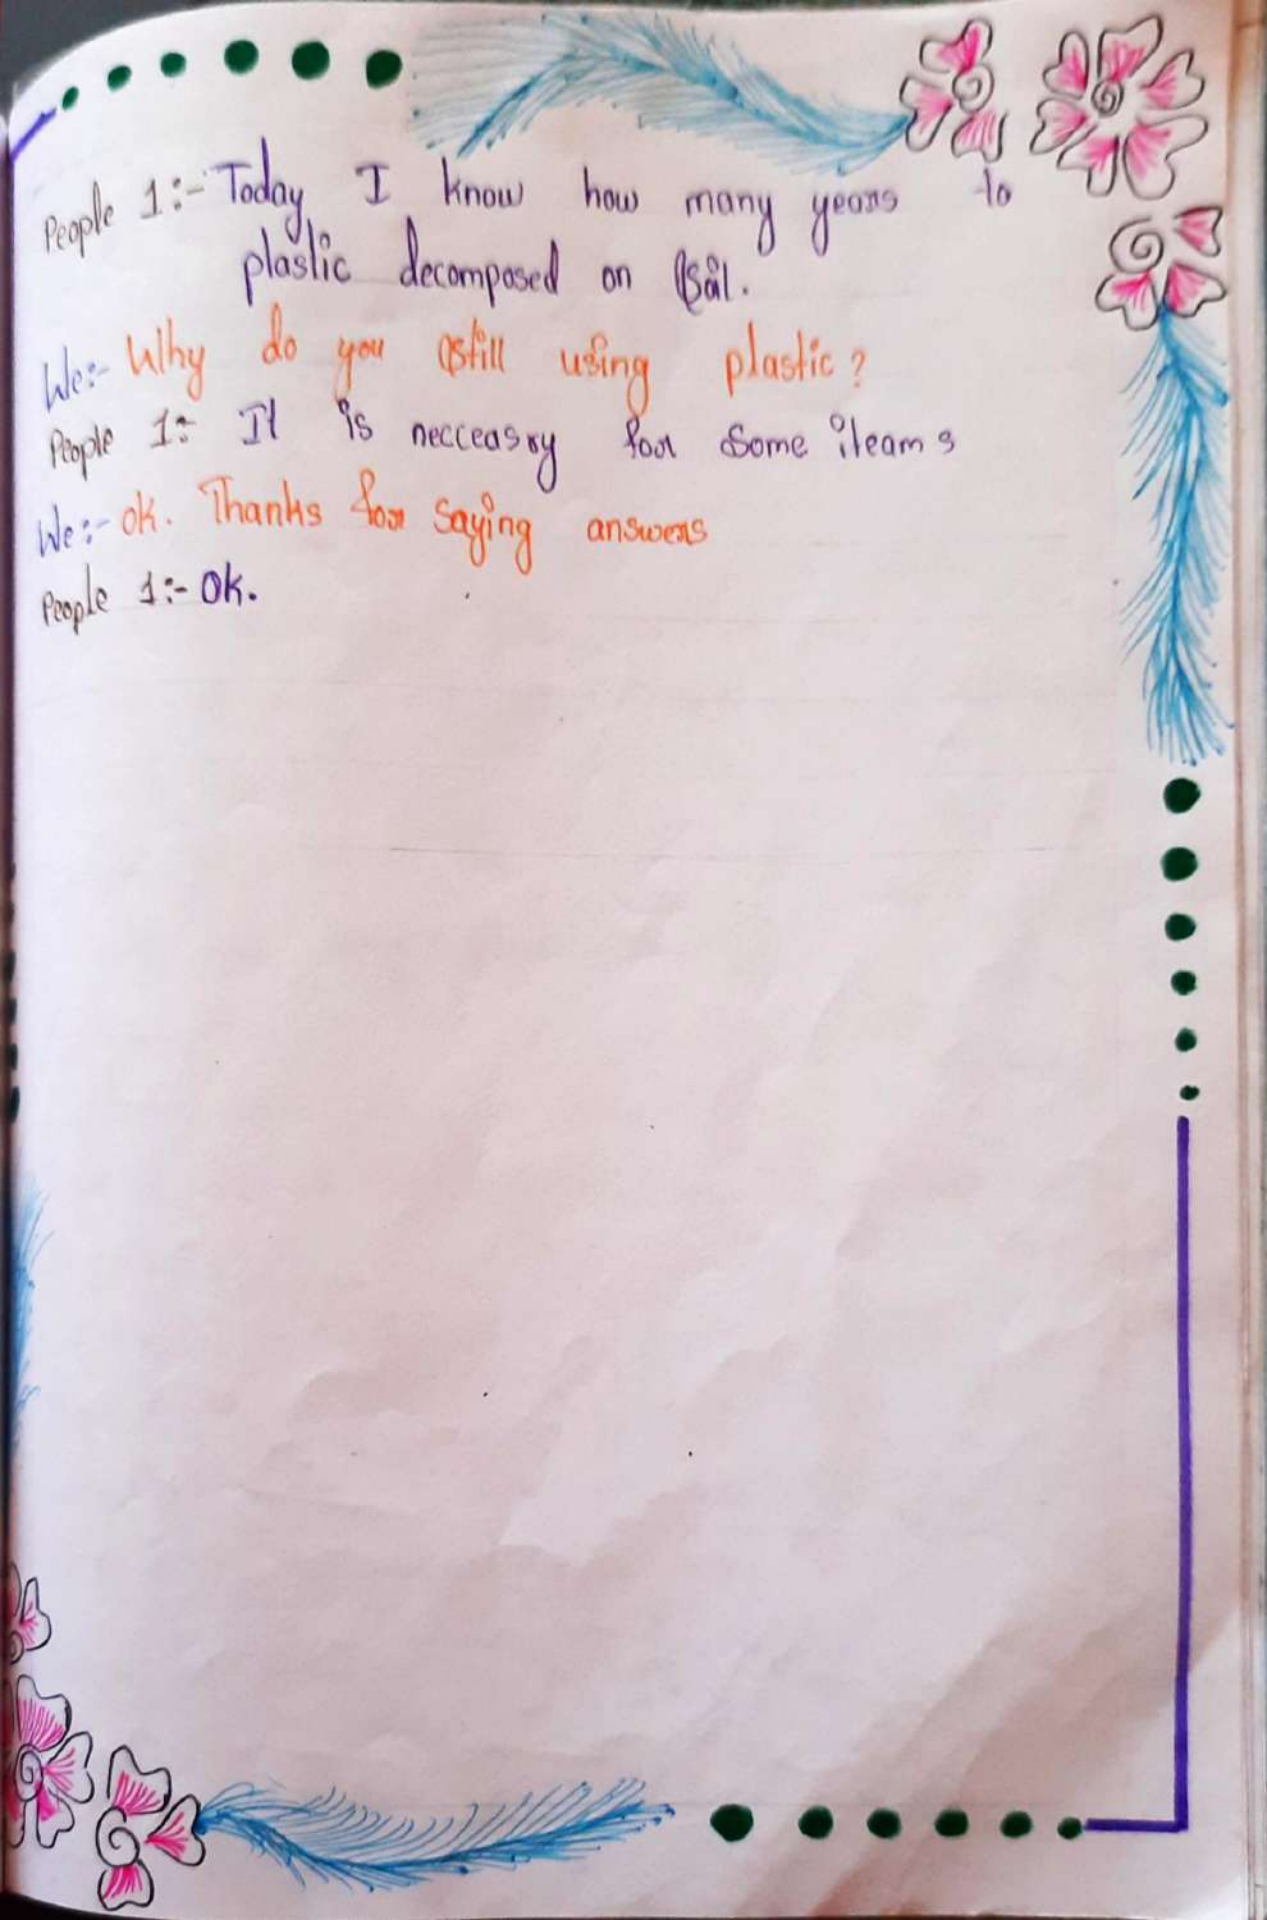 People 1:- Today I know how many years to
plastic decomposed on soil.
We:- Why do you still using plastic?
People 1:- It is necceasry for some iteams
We:- ok. Thanks for saying answers
People 1:- Ok.